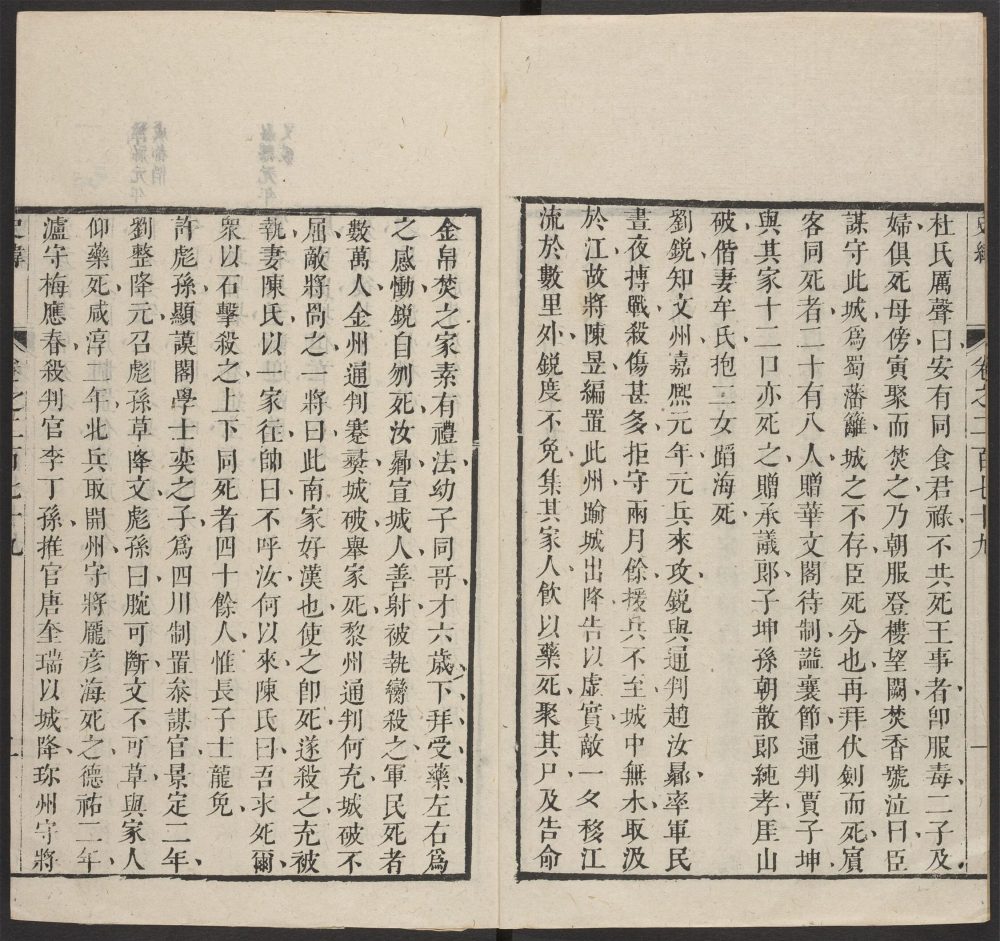 史緯 卷之二百七十九 一
杜氏厲聲曰安有同食君祿不共死王事者卽服毒二子及
婦俱死母傍寅聚而焚之乃朝服登樓望闕焚香號泣曰臣
謀守此城爲蜀藩籬城之不存臣死分也再拜伏劍而死賓
客同死者二十有八人贈華文閣待制謚襄節通判賈子坤
與其家十二口亦死之贈承議郎子坤孫朝散郎純孝厓山
破偕妻牟氏抱三女蹈海死
劉銳知文州嘉熙元年元兵來攻銳與通判趙汝曏率軍民
晝夜搏戰殺傷甚多拒守兩月餘援兵不至城中無水取汲
於江故將陳昱編置此州踰城出降告以虛實敵一夕移江
流於數里外銳度不免集其家人飮以藥死聚其尸及告命
金帛焚之家素有禮法幼子同哥才六歲下拜受藥左右爲
之感慟銳自刎死汝曏宣城人善射被執臠殺之軍民死者
數萬人金州通判蹇彝城破舉家死黎州通判何充城破不
屈敵將咼之一將曰此南家好漢也使之卽死遂殺之充被
執妻陳氏以一家往帥曰不呼汝何以來陳氏曰吾求死爾
衆以石擊殺之上下同死者四十餘人惟長子士龍免
許彪孫顯謨閣學士奕之子爲四川制置叅謀官景定二年
劉整降元召彪孫草降文彪孫曰腕可斷文不可草與家人
仰藥死咸淳 年北兵取開州守將龐彥海死之德祐二年
瀘守梅應春殺判官李丁孫推官唐奎瑞以城降珎州守將
史緯 卷之二百七十九 二